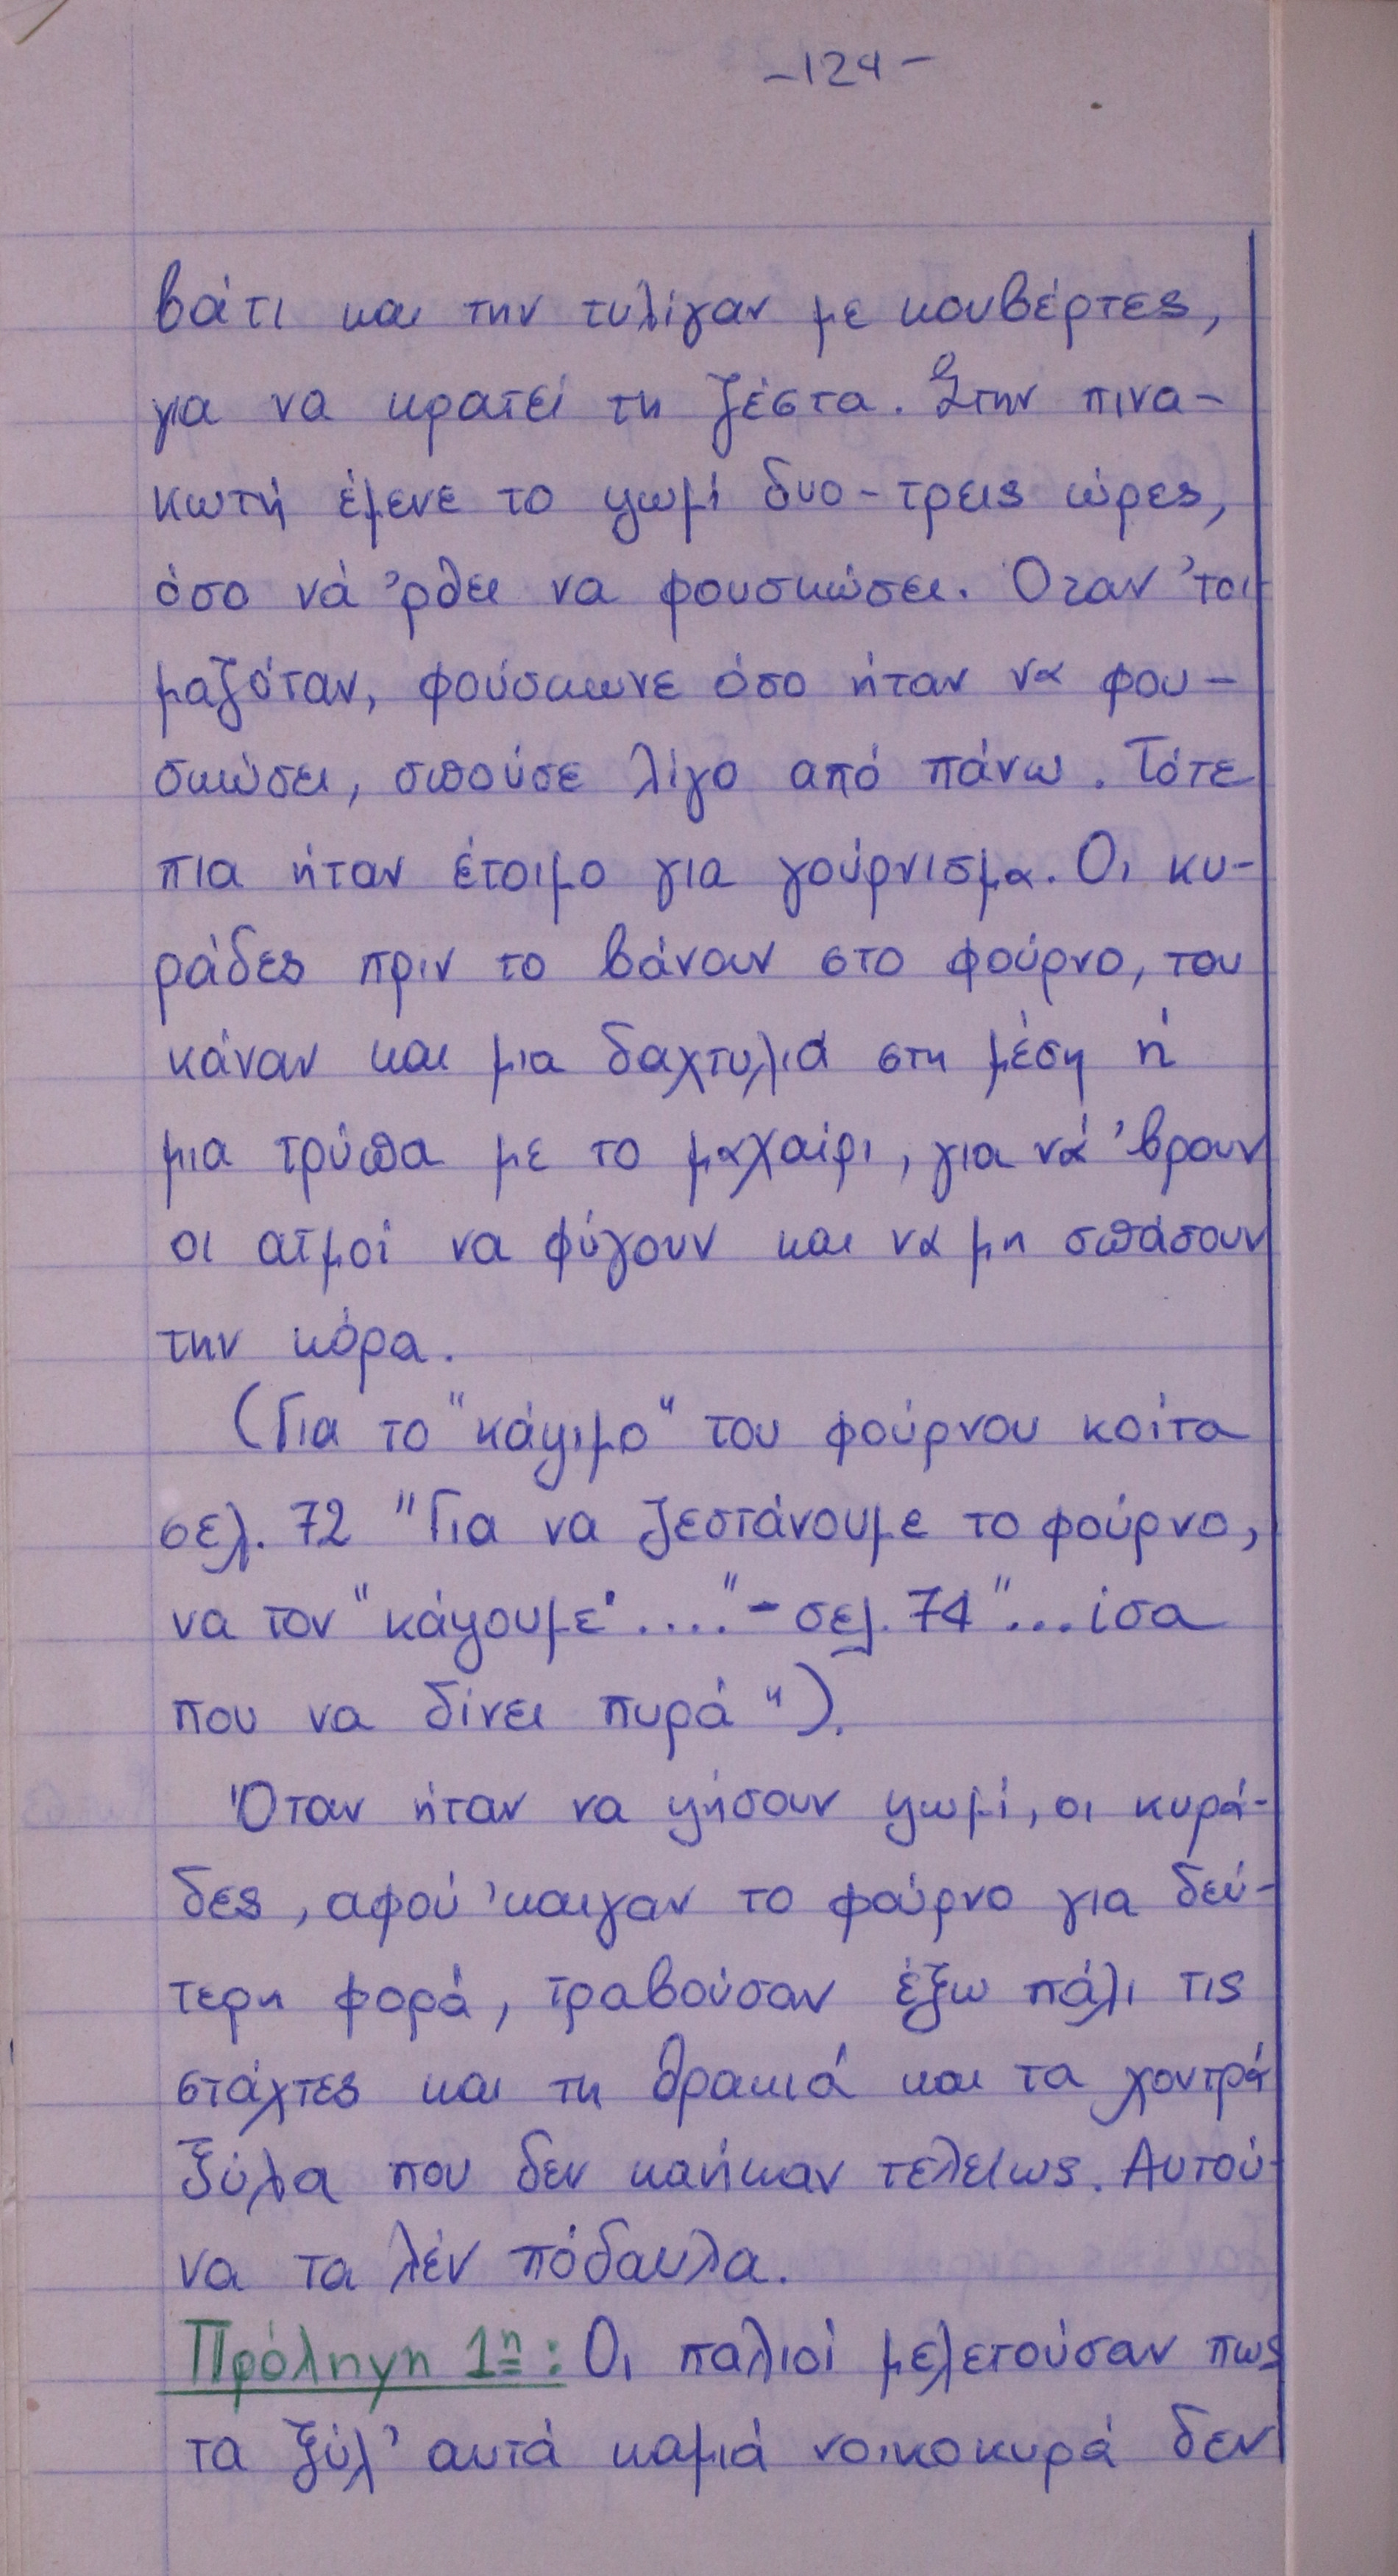 -124-
βάτι και την τυλίγαν με κουβέρτες,
για να κρατεί τη ζέστα. Στην πινα-
κωτή έμενε το ψωμί δυο-τρεις ώρες,
όσο νά 'ρθει να φουσκώσει. Όταν 'τοι-
μαζόταν, φούσκωνε όσο ήταν να φου-
σκώσει, σπούσε λίγο από πάνω. Τότε
πια ήταν έτοιμο για γούρνισμα. Οι κυ-
ράδες πριν το βάνουν στο φούρνο, του
κάναν και μια δαχτυλιά στη μέση ή
μια τρύπα με το μαχαίρι, για νά 'βρουν
οι ατμοί να φύγουν και να μη σπάσουν
την κόρα.
(Για το "κάψιμο" του φούρνου κοίτα
σελ. 72 "Για να ζεστάνουμε το φούρνο,
να τον "κάψουμε"...."- σελ. 74 "...ίσα
που να δίνει πυρά").
Όταν ήταν να ψήσουν ψωμί, οι κυρά-
δες, αφού 'καιγαν το φούρνο για δεύ-
τερη φορά, τραβούσαν έξω πάλι τις
στάχτες και τη θρακιά και τα χοντρά
ξύλα που δεν κανήκαν τελείως. Αυτού-
να τα λέν πόδαυλα.
Πρόληψη 1η: Οι παλιοί μελετούσαν πως
τα ξύλ' αυτά καμιά νοικοκυρά δεν